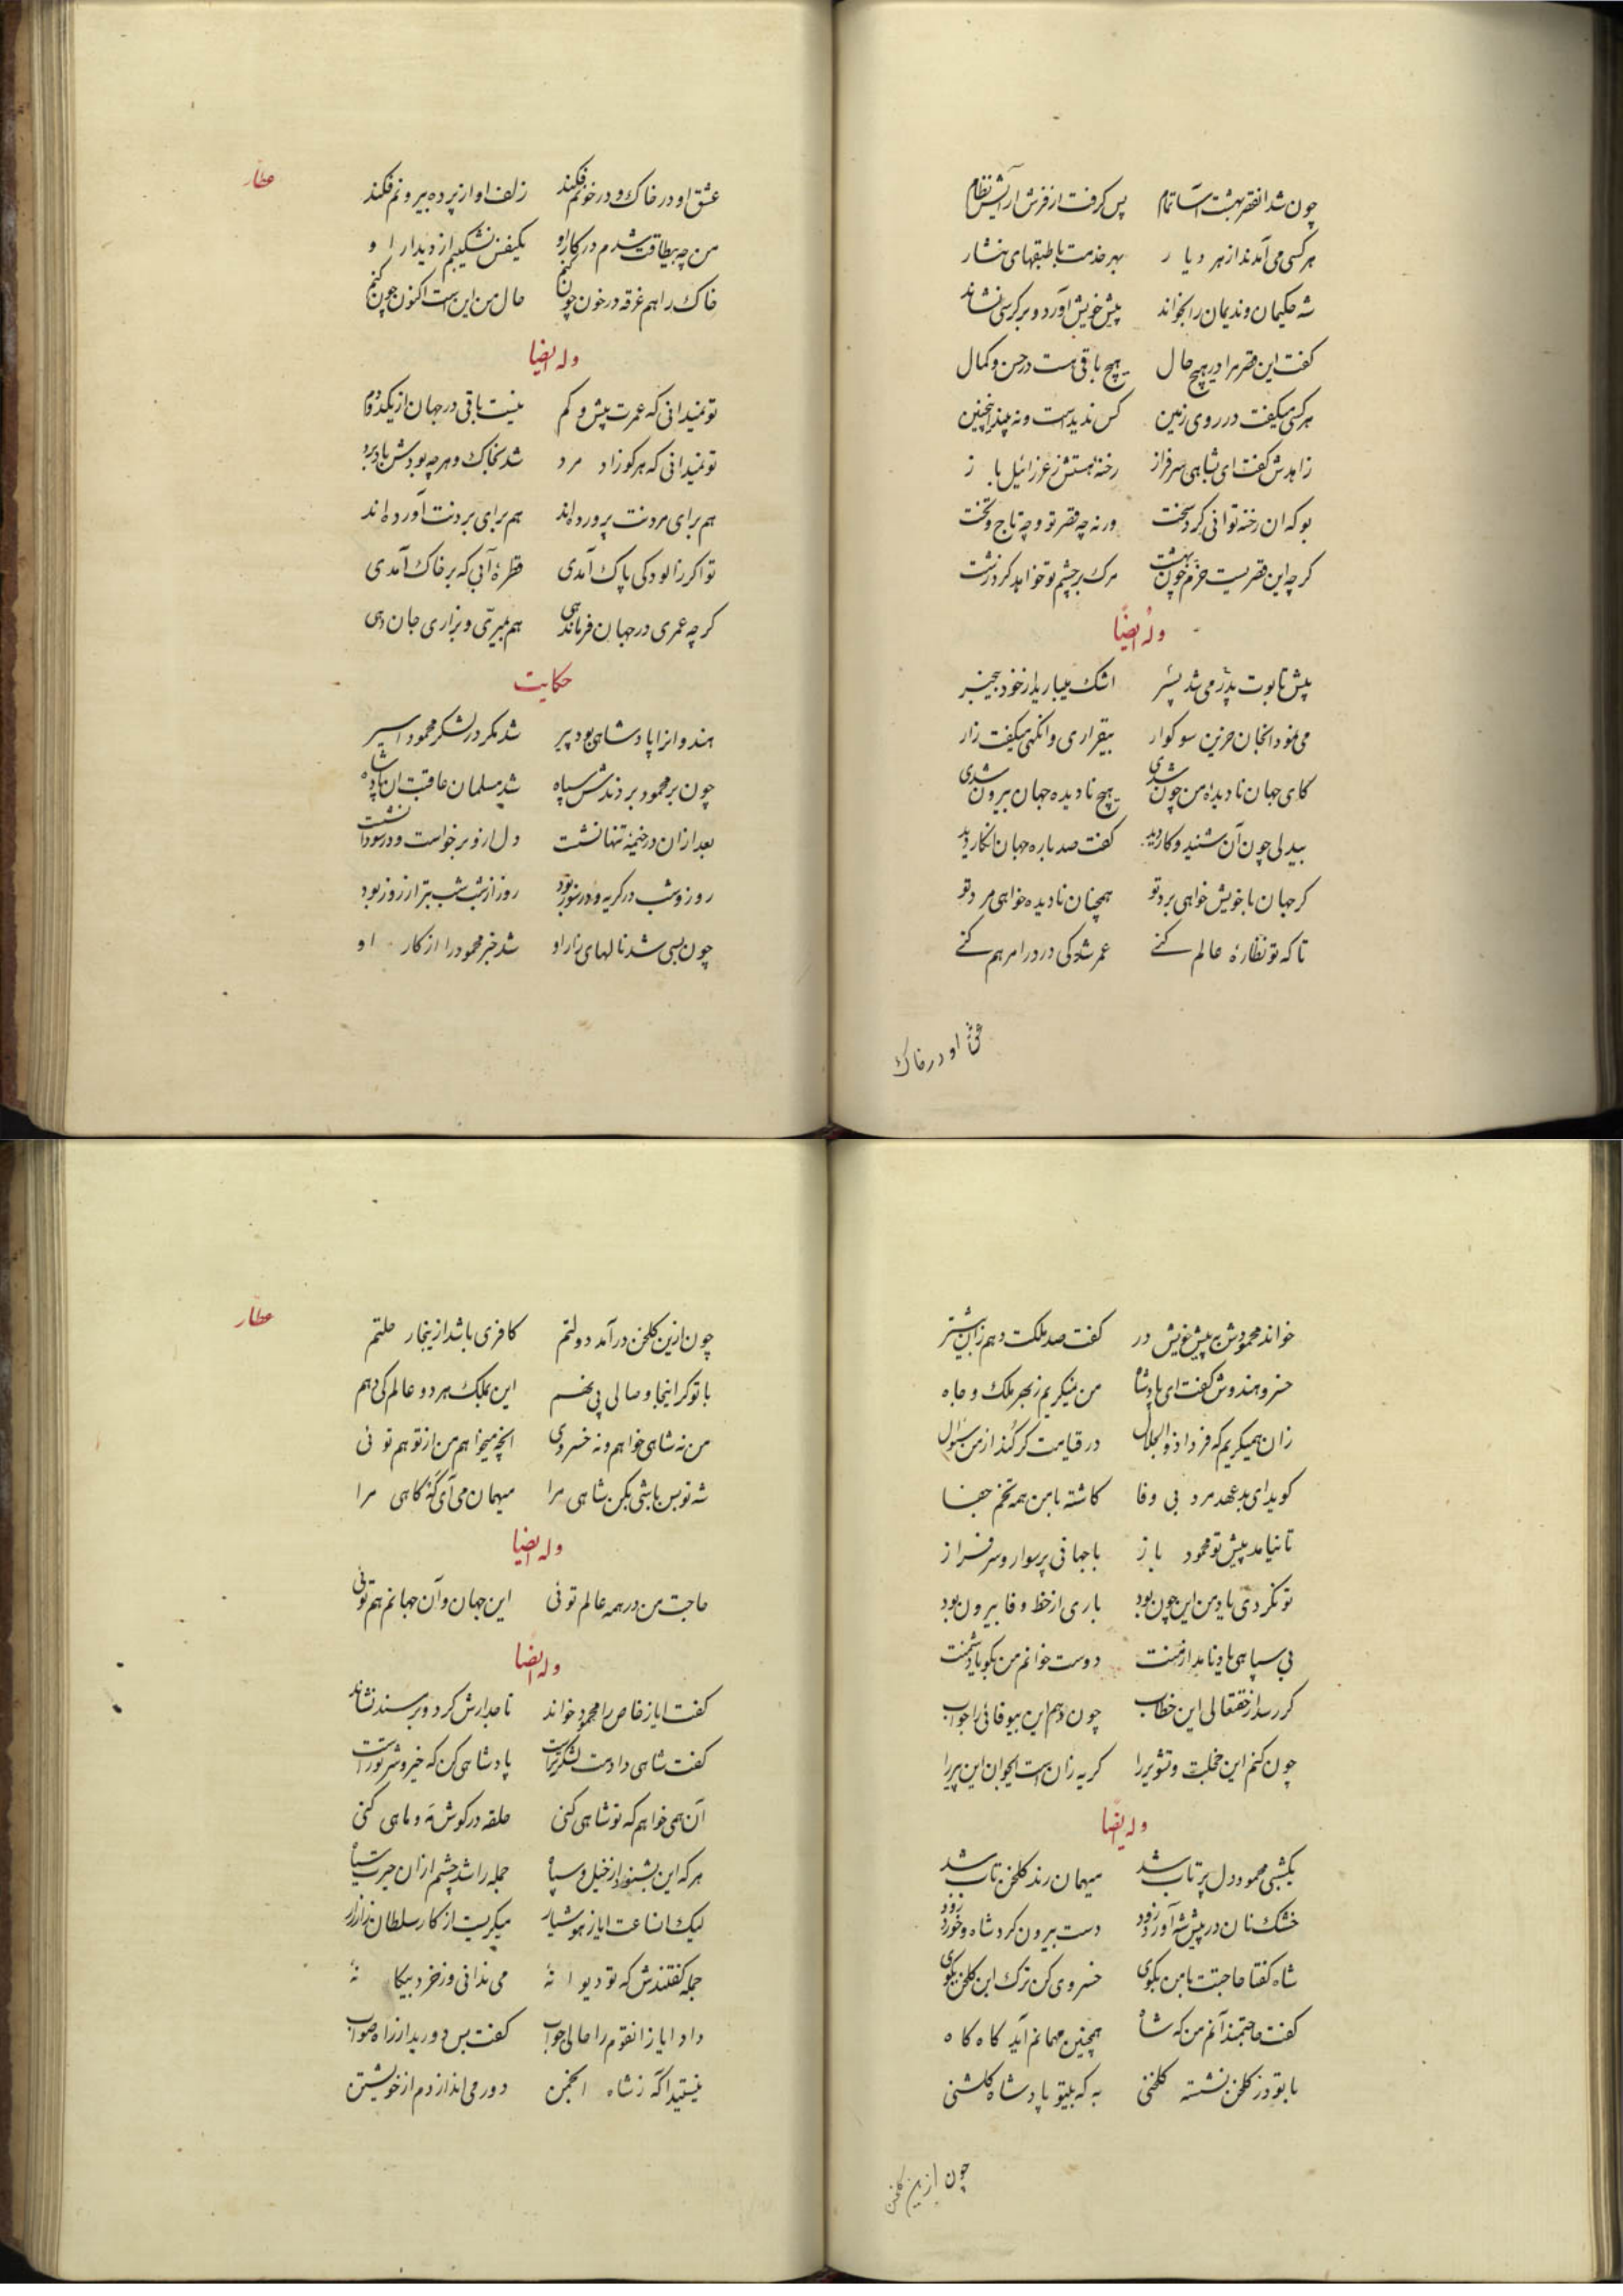 چون شد انقصر بهشت آسا تمام پس گرفت از فرش آرایش نظام
هر کسی می آمدند از هر دیار بهر خدمت با طبقهای نثار
شه حکیمان و ندیمان را بخواند پیش خویش آورد و بر کرسی نشاند
گفت این قصر مرا در هیچ حال هیچ باقی هست در حسن و کمال
هر کسی میگفت در روی زمین کس ندیدست و نه بیند اینچنین
زاهدش گفت ای شاهی سرفراز رخنهٔ هستش ز عزرائیل باز
بو که ان رخنه توانی کرد سخت ورنه چه قصر تو و چه تاج و تخت
گرچه این قصریست خرم چون بهشت مرک بر چشم تو خواهد کرد زشت
وله ایضاً
پیش تابوت پدر می شد پسر اشک میبارید از خود بیخبر
می نمود انجان حزین سوگوار بیقراری وانگهی میگفت زار
کای جهان نادیده من چون شدی هیچ نادیده جهان بیرون شدی
بیدلی چون آن شنید و کار دید گفت صد باره جهان انکار دید
گر جهان با خویش خواهی برد تو همچنان نادیده خواهی مرد تو
تا که تو نظارهٔ عالم کنے عمر شد کی درد را مرهم کنے
عشق او در خاک
عطار
عشق او در خاک و در خونم فکند زلف او از پرده بیرونم فکند
من چه بیطاقت شدم در کار او یکنفس نشکیبم از دیدار او
خاک راهم غرقه در خون چون کنم حال من این است اکنون چون کنم
وله ایضا
تو نمیدانی که عمرت بیش و کم نیست باقی در جهان از یکدو دم
تو نمیدانی که هر کو زاد مرد شد بخاک و هر چه بودش باد برد
هم برای مردنت پرورده اند هم برای بردنت آورده اند
تو اگر ز الودکی پاک آمدی قطرهٔ آبی که بر خاک آمدی
گرچه عمری در جهان فرماندهی هم بمیری و بزاری جان دهی
حکایت
هندوانرا پادشاهی بود پیر شد مگر در لشکر محمود اسیر
چون بر محمود بردندش سپاه شد مسلمان عاقبت ان پادشاه
بعد ازان در خیمه تنها نشست دل ازو برخواست و در سودا نشست
روز و شب در گریه و در سوز بود روز از شب شب بتر از روز بود
چون بسی شد نالهای زار او شد خبر محمود را از کار او
خواند محمودش به پیش خویش در گفت صد ملکت دهم زان بیشتر
خسرو هندوش گفت ای پادشاه من نمیگریم ز بهر ملک و جاه
زان همیگریم که فردا ذوالجلال در قیامت گر کند از من سؤال
گوید ای بدعهد مرد بی وفا کاشته با من همه تخم جفا
تا نیامد پیش تو محمود باز با جهانی پر سوار و سرفراز
تو نکردی یاد من این چون بود باری از خط وفا بیرون بود
بی سپاهی یاد نامد از منت دوست خوانم من بگو یا دشمنت
گر رسد از حقتعالی این خطاب چون دهم این بیوفائی را جواب
چون کنم این خجلت و تشویر را گریه زان است ایجوان این پیر را
وله ایضاً
یکشبی محمود دل پر تاب شد میهمان رند گلخن تاب شد
خشک نان در پیش شه آورد زود دست بیرون کرد شاه و خورد زود
شاه گفتا حاجتت با من بگوی خسروی کن ترک این گلخن بگوی
گفت حاجتمند آنم من که شاه همچنین مهمانم آید گاه گاه
با تو در گلخن نشسته گلخنی به که بیتو پادشاه گلشنی
چون ازین گلخن
عطار
چون ازین گلخن در آمد دولتم کافری باشد ازینجا رحلتم
با تو گر اینجا وصالی پی نهم این بملک هر دو عالم کی دهم
من نه شاهی خواهم و نه خسروی انچه میخواهم من از تو هم توئی
شه تو بس باشی مکن شاهی مرا میهمان می آی گه گاهی مرا
وله ایضا
حاجت من در همه عالم توئی این جهان و آن جهانم هم توئی
وله ایضا
گفت ایاز خاص را محمود خواند تاجدارش کرد و بر مسند نشاند
گفت شاهی دادمت لشکر تراست پادشاهی کن که خیر و شر توراست
آن همی خواهم که تو شاهی کنی حلقه در گوش مه و ماهی کنی
هر که این بشنود از خیل و سپاه جمله را شد چشم ازان حیرت سیاه
لیک انساعت ایاز هوشیار میگریست از کار سلطان زار زار
جمله گفتندش که تو دیوانهٔ می ندانی وز خرد بیگانهٔ
داد ایاز انقوم را حالی جواب گفت بس دورید از راه صواب
نیستید آگه ز شاه انجمن دور می اندازدم از خویشتن